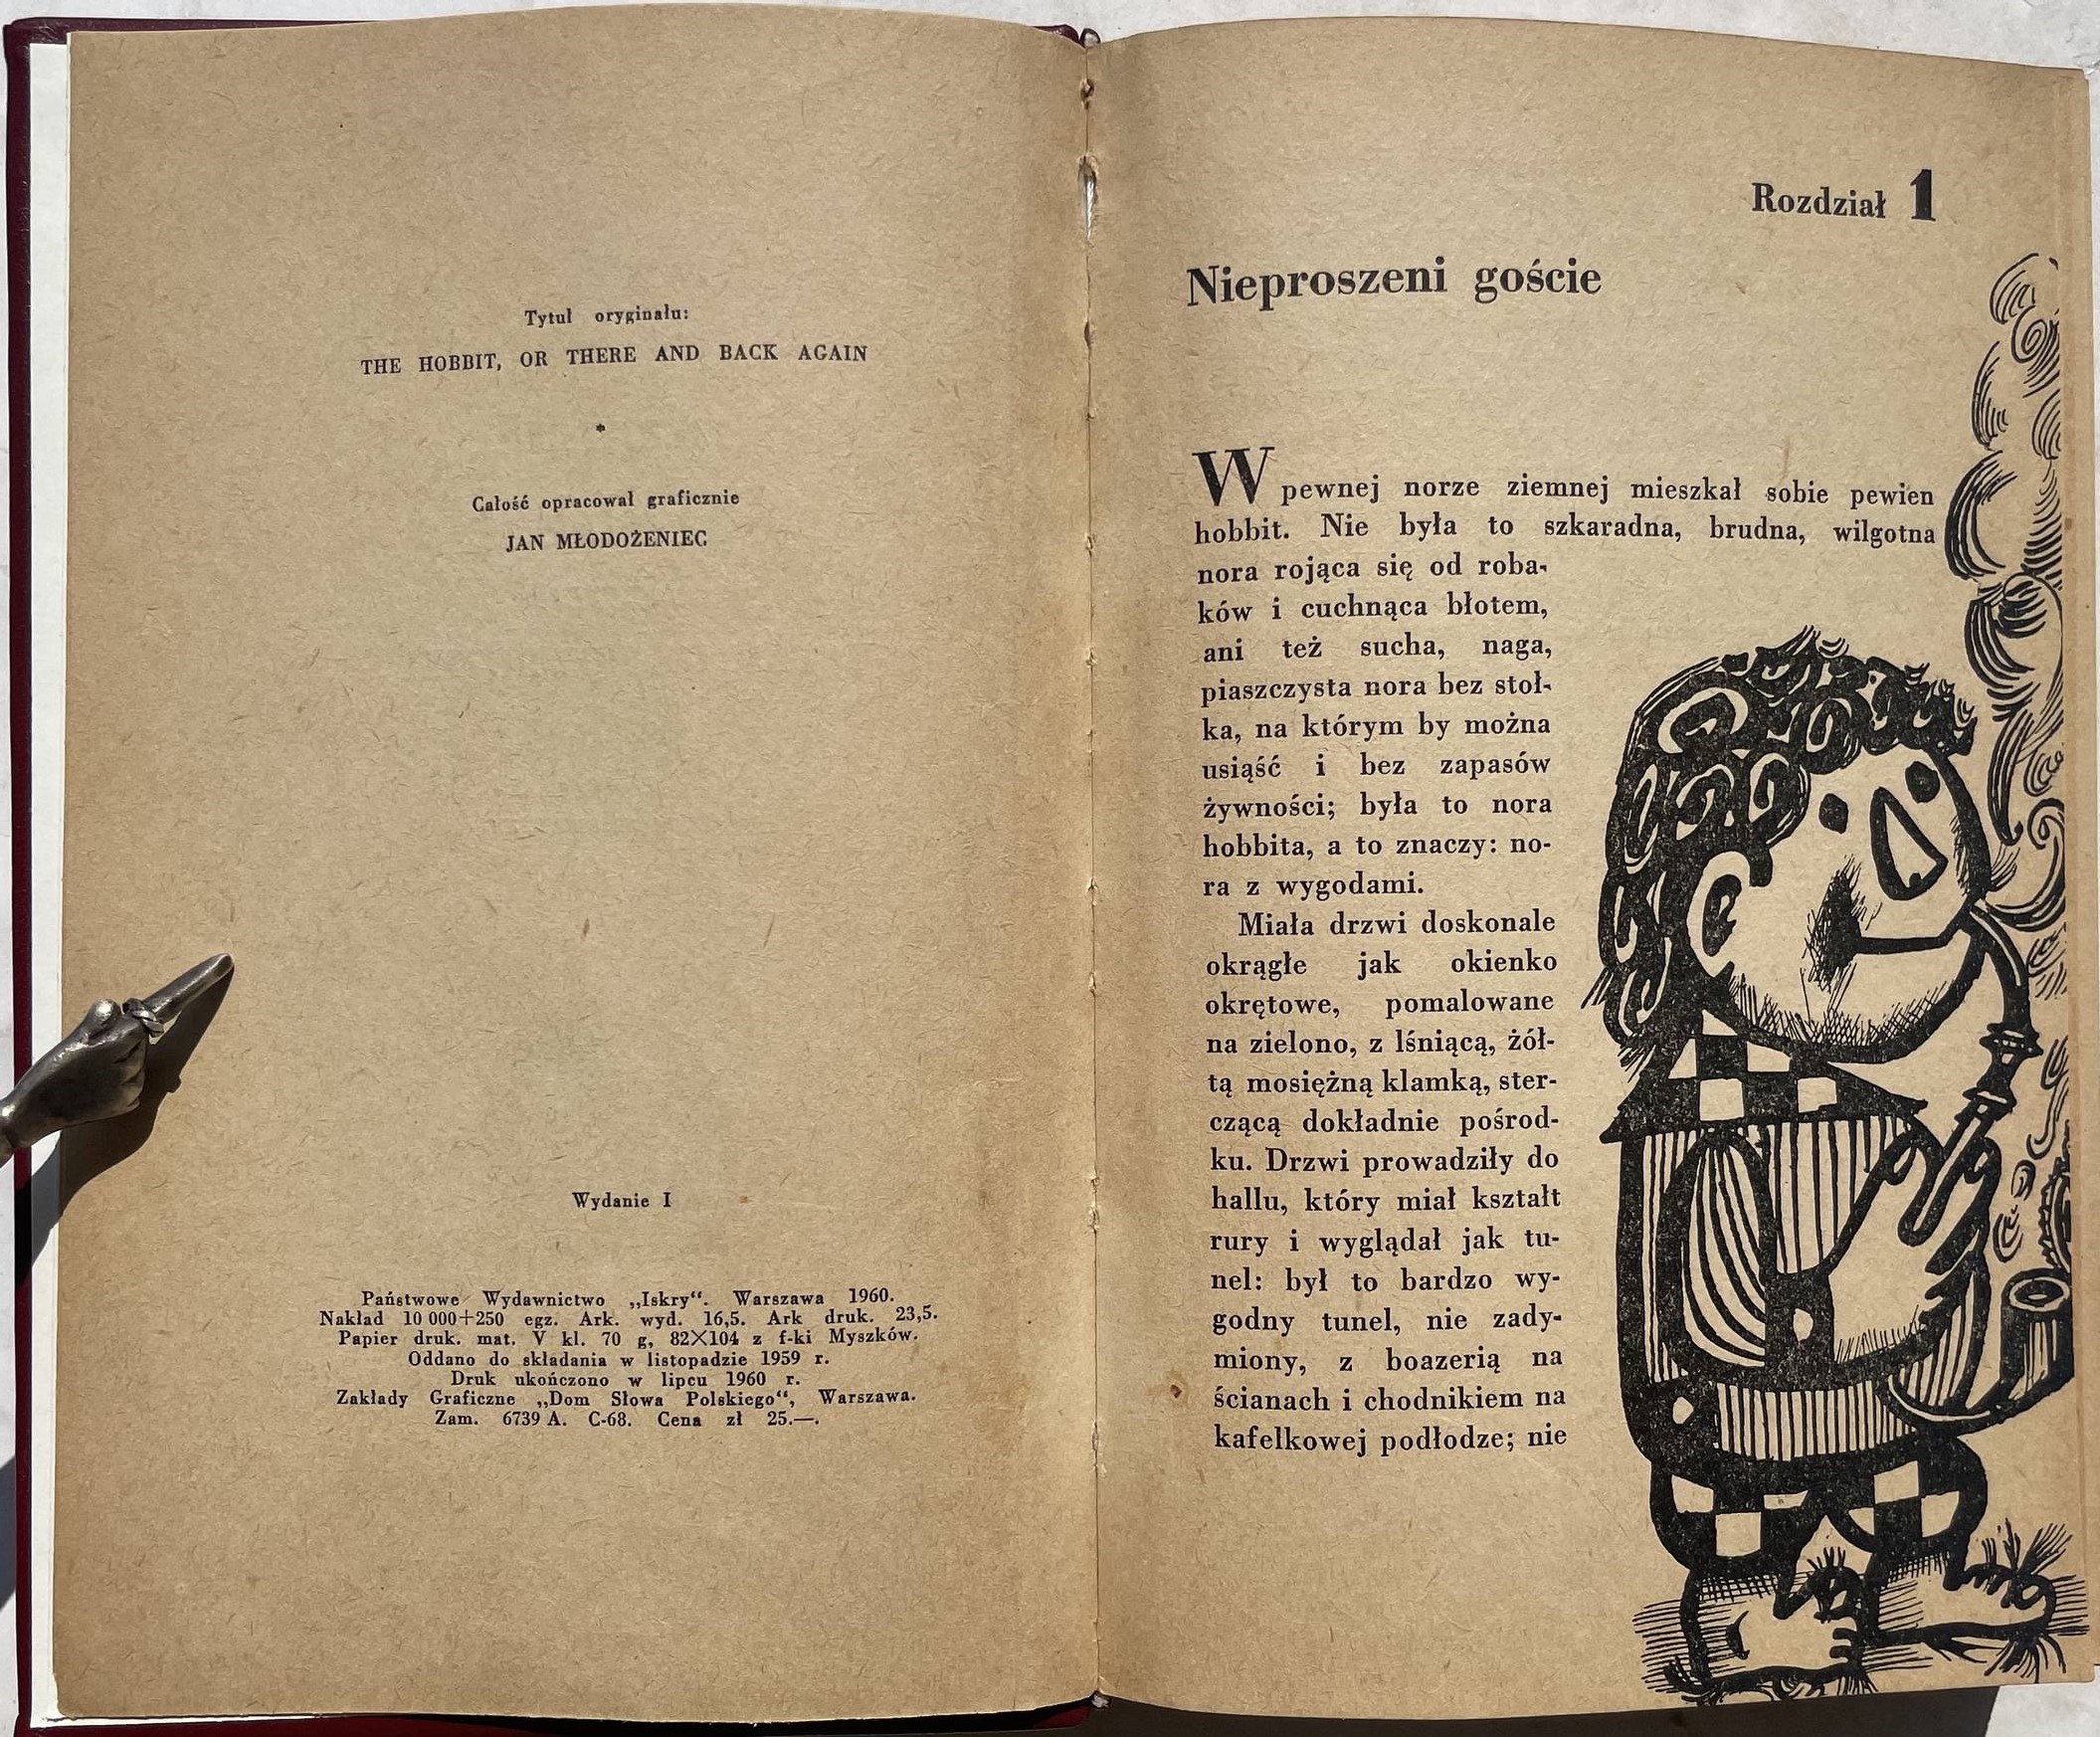 Tytuł oryginału:
THE HOBBIT, OR THERE AND BACK AGAIN
*
Całość opracował graficznie
JAN MŁODOŻENIEC
Wydanie I
Państwowe Wydawnictwo „Iskry“. Warszawa 1960.
Nakład 10 000+250 egz. Ark. wyd. 16,5. Ark druk. 23,5.
Papier druk. mat. V kl. 70 g, 82×104 z f-ki Myszków.
Oddano do składania w listopadzie 1959 r.
Druk ukończono w lipcu 1960 r.
Zakłady Graficzne „Dom Słowa Polskiego“, Warszawa.
Zam. 6739 A. C-68. Cena zł 25.—.
Rozdział 1
Nieproszeni goście
W pewnej norze ziemnej mieszkał sobie pewien
hobbit. Nie była to szkaradna, brudna, wilgotna
nora rojąca się od roba-
ków i cuchnąca błotem,
ani też sucha, naga,
piaszczysta nora bez stoł-
ka, na którym by można
usiąść i bez zapasów
żywności; była to nora
hobbita, a to znaczy: no-
ra z wygodami.
Miała drzwi doskonale
okrągłe jak okienko
okrętowe, pomalowane
na zielono, z lśniącą, żół-
tą mosiężną klamką, ster-
czącą dokładnie pośrod-
ku. Drzwi prowadziły do
hallu, który miał kształt
rury i wyglądał jak tu-
nel: był to bardzo wy-
godny tunel, nie zady-
miony, z boazerią na
ścianach i chodnikiem na
kafelkowej podłodze; nie